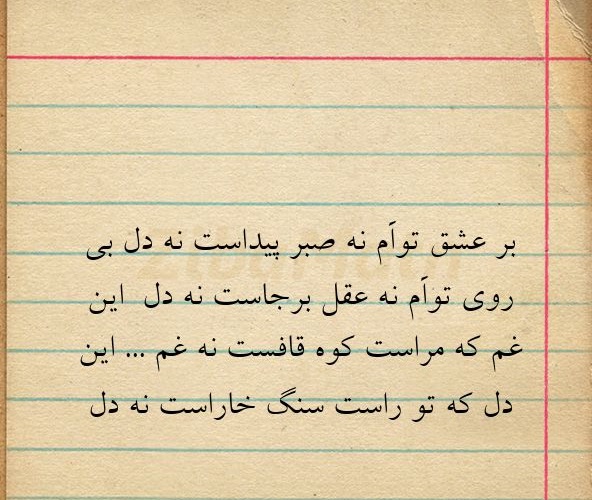 بر عشق تواَم نه صبر پیداست نه دل بی
روی تواَم نه عقل برجاست نه دل این
غم که مراست کوه قافست نه غم ... این
دل که تو راست سنگ خاراست نه دل